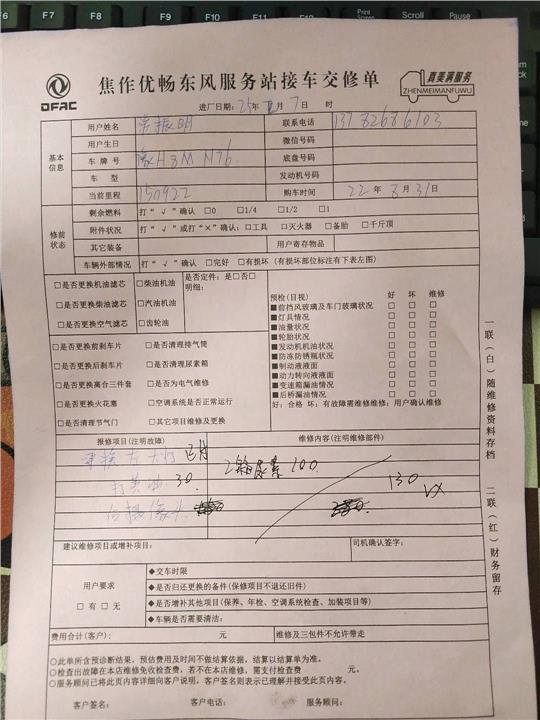 Print Screen
Scroll
Pause
DFAC
焦作优畅东风服务站接车交修单
真美满服务
ZHENMEIMANFUWU
进厂日期：25年 月7日 时
基本信息
用户姓名 常振明 联系电话 13782686103
用户生日 微信号码
车牌号 豫H8M N76 底盘号码
车型 发动机号码
当前里程 150922 购车时间 22年8月31日
修前状态
剩余燃料 打“√”确认 □0 □1/4 □1/2 □1
附件状况 打“√”或打“×”确认：□工具 □灭火器 □备胎 □千斤顶
其它装备 用户寄存物品
车辆外部情况 打“√”确认 □完好 □有损坏（有损部位标注有下表左图）
□是否更换机油滤芯 □柴油机油 是否定件：是□否□
明细：
□是否更换柴油滤芯 □汽油机油
□是否更换空气滤芯 □齿轮油
□是否更换前刹车片 □是否清理排气筒
□是否更换后刹车片 □是否清理尿素箱
□是否更换离合三件套 □是否为电气维修
□是否更换火花塞 □空调系统是否正常运行
□是否清理节气门 □其它项目维修及更换
预检（目视） 好 坏 维修
■前挡风玻璃及车门玻璃状况 □ □ □
■灯具情况 □ □ □
■油量状况 □ □ □
■轮胎状况 □ □ □
■发动机机油状况 □ □ □
■防冻防锈瓶状况 □ □ □
■制动液液面 □ □ □
■动力转向液液面 □ □ □
■变速箱漏油情况 □ □ □
■后桥漏油情况 □ □ □
好：合格 坏：有故障需维修维修：用户确认维修
报修项目（注明故障） 维修内容（注明维修部件）
更换右大灯
打黄油 30 2箱尿素 100
130
建议维修项目或增补项目： 司机确认签字：
用户要求
□有□无
◆交车时限
◆是否归还更换的备件（保修项目不退还旧件）
◆是否增补其他项目（保养、年检、空调系统检查、加装项目等）
◆车辆是否需要清洁：
费用合计（客户）： 元 维修及三包件不允许带走
○此单所含预诊断结果，预估费用及时间不做结算依据，结算以结算单为准。
○检查出故障在本店维修免收检查费，若不在本店维修，需支付检查费 元。
○服务顾问已将此页内容详细向客户说明，客户签名则表示已理解并接受此页内容。
客户签名： 客户电话： 服务顾问：
一联（白）随维修资料存档
二联（红）财务留存